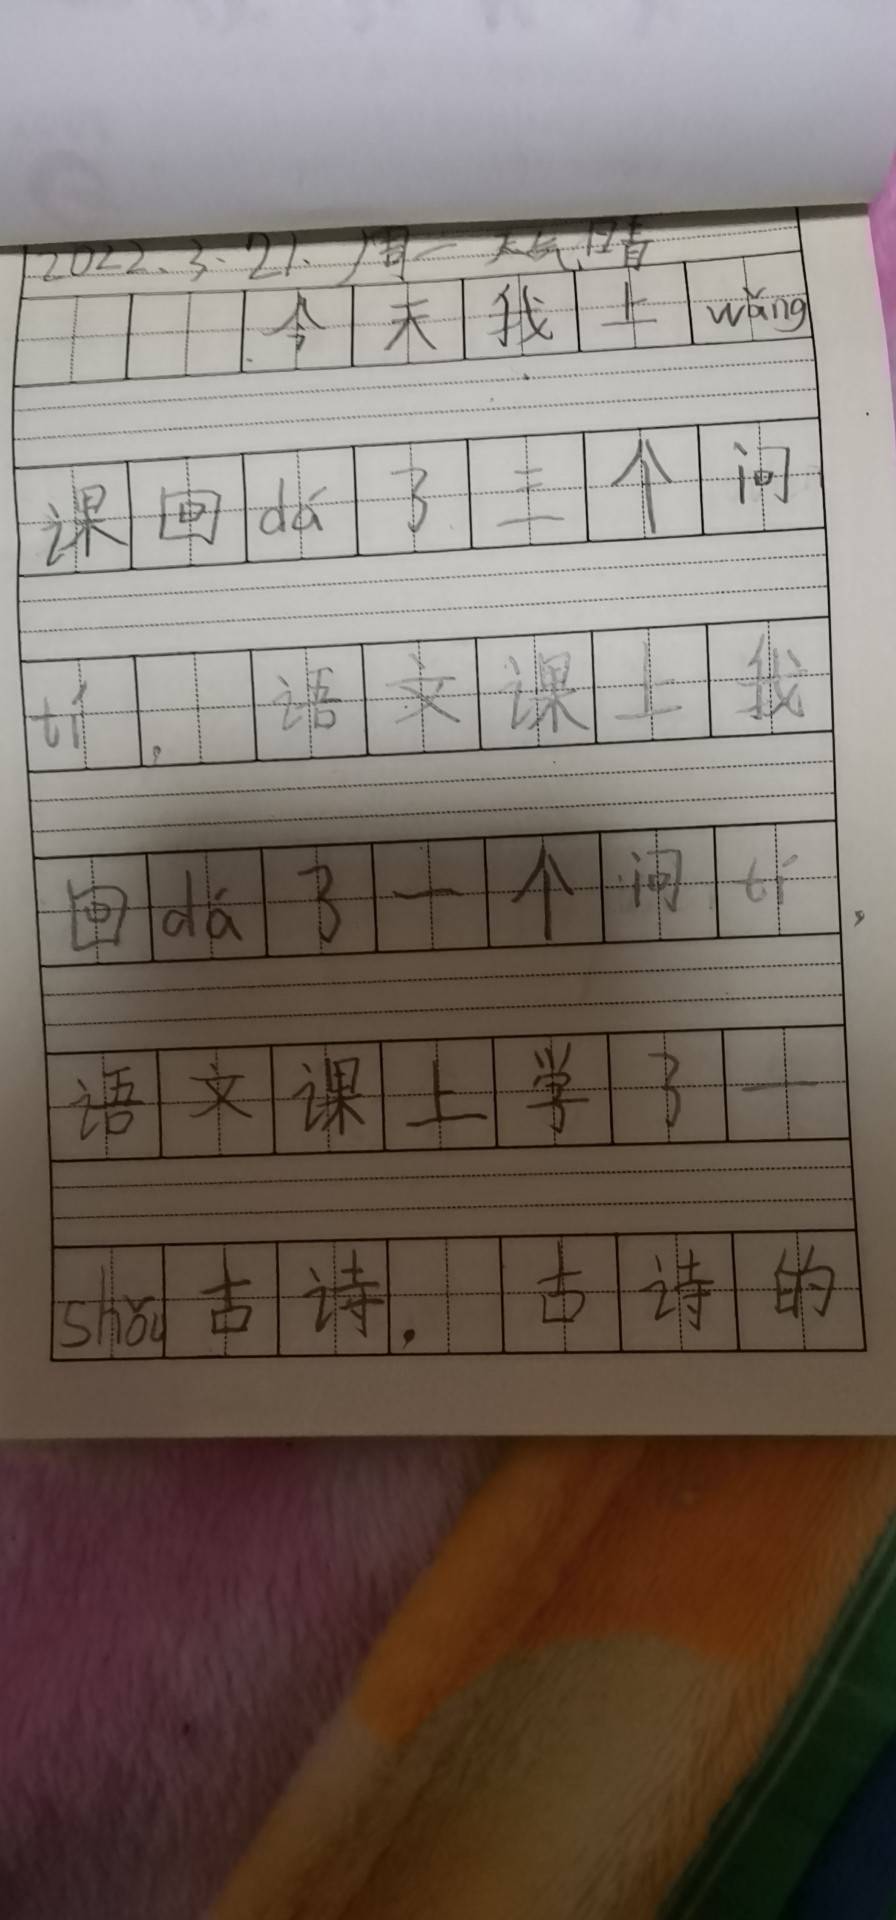 2022.3.21.周一 天气晴
今天我上wǎng
课回dá了三个问
tí，语文课上我
回dá了一个问tí，
语文课上学了一
shǒu古诗.古诗的